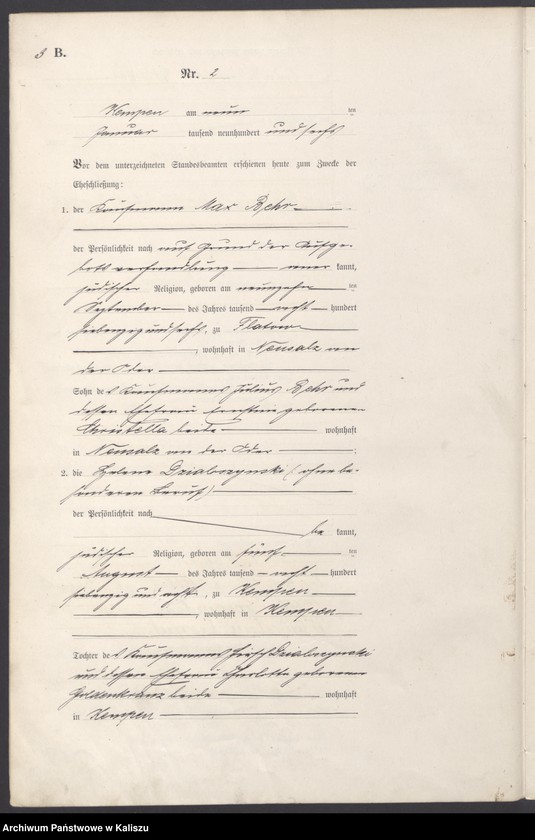 B.
Nr. 2
Kempen am neun ten
Januar tausend neunhundert und sechs
Vor dem unterzeichneten Standesbeamten erschienen heute zum Zwecke der
Eheschließung:
1. der Kaufmann Max Behr
der Persönlichkeit nach auf Grund der Aufge-
botsverhandlung aner kannt,
jüdischer Religion, geboren am neunzehn ten
September des Jahres tausend acht hundert
siebenzig und sechs, zu Flatow
, wohnhaft in Neusalz an
der Oder
Sohn des Kaufmanns Julius Behr und
dessen Ehefrau Ernestine geborenen
beide wohnhaft
in Neusalz an der Oder ;
2. die Helene Dzialoszynski (ohne be-
sonderen Beruf)
der Persönlichkeit nach
be kannt,
jüdischer Religion, geboren am fünf ten
August des Jahres tausend acht hundert
siebenzig und acht, zu Kempen
, wohnhaft in Kempen
Tochter des Kaufmanns Hirsch Dzialoszynski
und dessen Ehefrau Charlotte geborenen
Goldenkranz beide wohnhaft
in Kempen
Archiwum Państwowe w Kaliszu